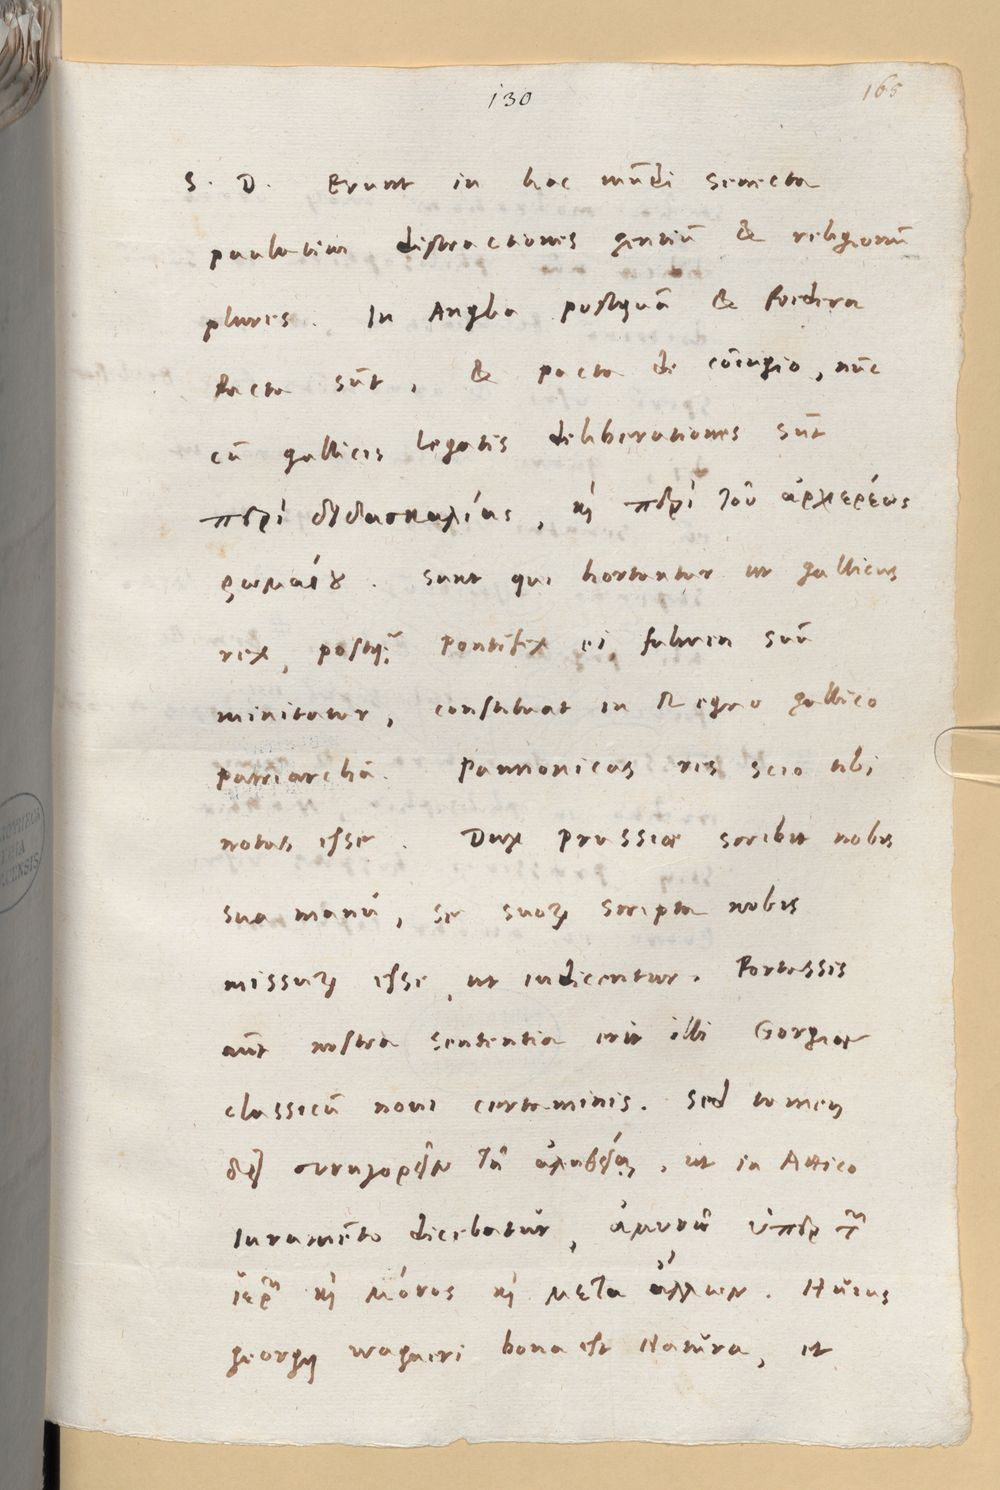 130
165
S. D. Erunt in hac mūdi senecta
paulatim distractiones gentiū & religionū
plures. In Anglia postquā & foedera
facta sūt, & pacta de cōiugio, nūc
cū gallicis legatis deliberationes sūt
περὶ διδασκαλίας, κ̀ περὶ τοῦ ἀρχιερέως
ῥωμαίου. Sunt qui hortantur ut gallicus
rex, postq̃, Pontifex ei fulmen suū
minitatur, constituat in Regno gallico
patriarchā. Pannonicas res scio tibi
notas esse. Dux Prussiæ scribit nobis
sua manu, se suoꝝ scripta nobis
missuꝝ esse, ut iudicentur. Fortassis
aūt nostra sententia erit illi Gorgiæ
classicū noui certaminis. Sed tamen
δεῖ συνηγορεῖν τῇ ἀληθείᾳ, ut in Attico
Iuramēto dicebatur, ἀμυνῶ ὑπὲρ τ̃
ἱερῶν κ̀ μόνος κ̀ μετὰ ἄλλων. Huius
georgij wagneri bona est Natura, et